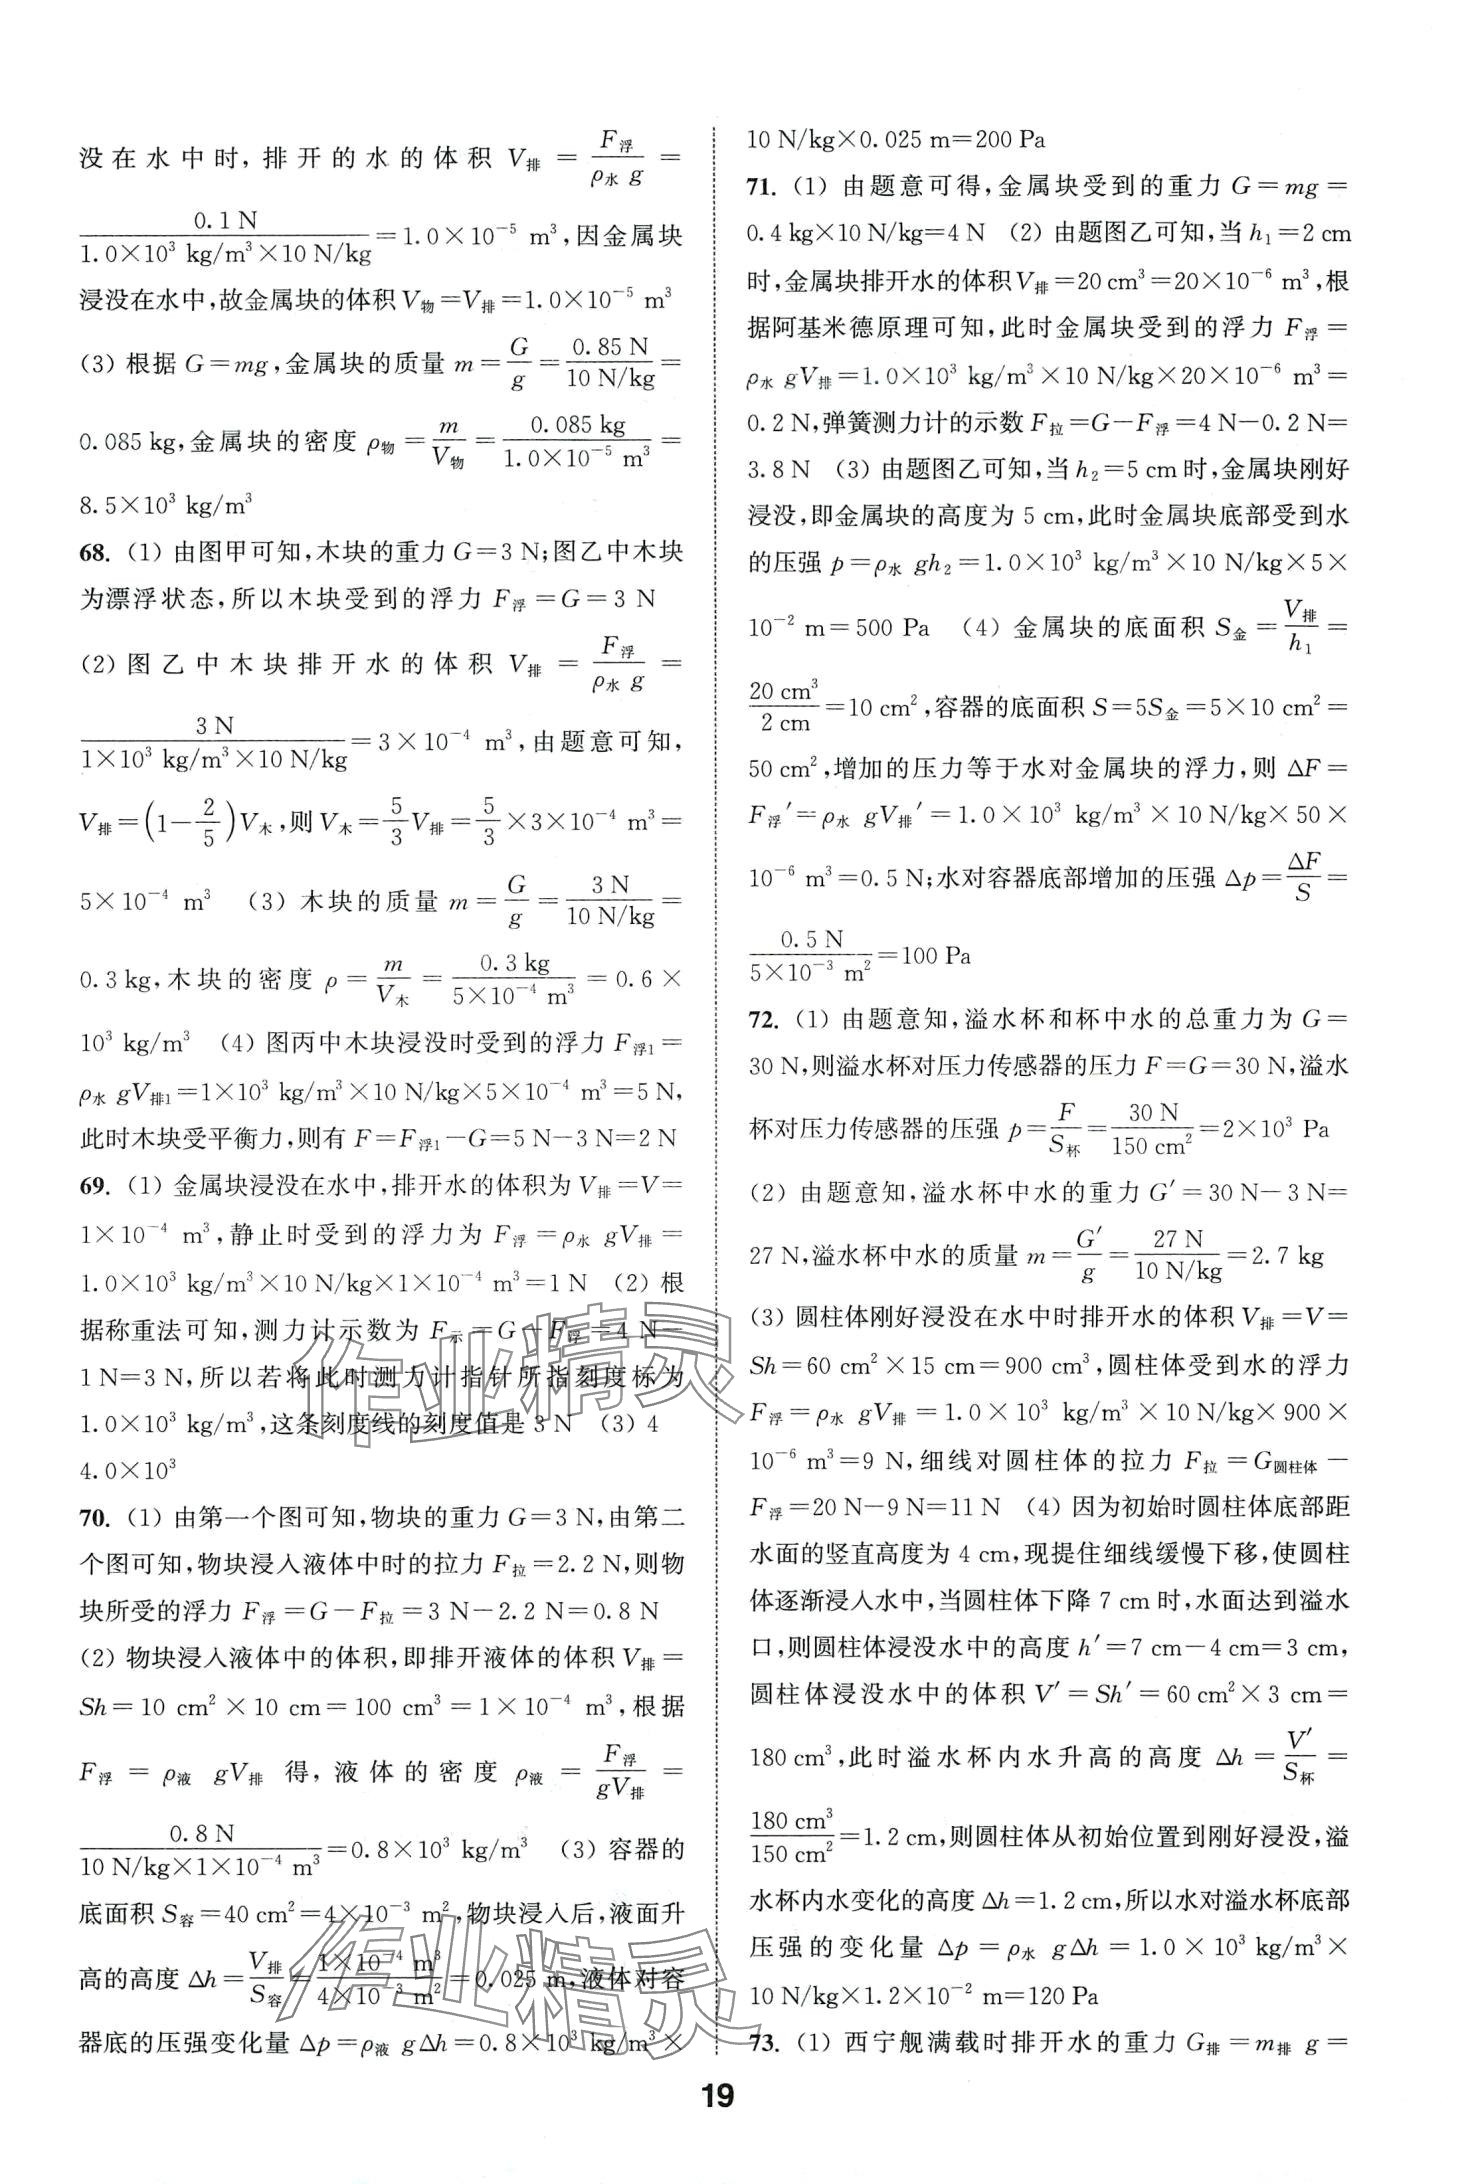 没在水中时,排开的水的体积 V排 = F浮/(ρ水 g) =
0.1 N/(1.0×10³ kg/m³×10 N/kg)=1.0×10⁻⁵ m³,因金属块
浸没在水中,故金属块的体积 V物=V排=1.0×10⁻⁵ m³
(3) 根据 G=mg,金属块的质量 m=G/g=0.85 N/10 N/kg=
0.085 kg,金属块的密度 ρ物=m/V物=0.085 kg/(1.0×10⁻⁵ m³)=
8.5×10³ kg/m³
68. (1) 由图甲可知,木块的重力 G=3 N;图乙中木块
为漂浮状态,所以木块受到的浮力 F浮=G=3 N
(2) 图乙中木块排开水的体积 V排 = F浮/(ρ水 g) =
3 N/(1×10³ kg/m³×10 N/kg)=3×10⁻⁴ m³,由题意可知,
V排=(1−2/5)V木,则 V木=5/3 V排=5/3×3×10⁻⁴ m³=
5×10⁻⁴ m³ (3) 木块的质量 m=G/g=3 N/10 N/kg=
0.3 kg,木块的密度 ρ=m/V木=0.3 kg/(5×10⁻⁴ m³)=0.6×
10³ kg/m³ (4) 图丙中木块浸没时受到的浮力 F浮1=
ρ水 gV排1=1×10³ kg/m³×10 N/kg×5×10⁻⁴ m³=5 N,
此时木块受平衡力,则有 F=F浮1−G=5 N−3 N=2 N
69. (1) 金属块浸没在水中,排开水的体积为 V排=V=
1×10⁻⁴ m³,静止时受到的浮力为 F浮=ρ水 gV排=
1.0×10³ kg/m³×10 N/kg×1×10⁻⁴ m³=1 N (2) 根
据称重法可知,测力计示数为 F示=G−F浮=4 N−
1 N=3 N,所以若将此时测力计指针所指刻度标为
1.0×10³ kg/m³,这条刻度线的刻度值是 3 N (3) 4
4.0×10³
70. (1) 由第一个图可知,物块的重力 G=3 N,由第二
个图可知,物块浸入液体中时的拉力 F拉=2.2 N,则物
块所受的浮力 F浮=G−F拉=3 N−2.2 N=0.8 N
(2) 物块浸入液体中的体积,即排开液体的体积 V排=
Sh=10 cm²×10 cm=100 cm³=1×10⁻⁴ m³,根据
F浮 = ρ液 gV排 得,液体的密度 ρ液 = F浮/(gV排) =
0.8 N/(10 N/kg×1×10⁻⁴ m³)=0.8×10³ kg/m³ (3) 容器的
底面积 S容=40 cm²=4×10⁻³ m²,物块浸入后,液面升
高的高度 Δh=V排/S容=1×10⁻⁴ m³/(4×10⁻³ m²)=0.025 m,液体对容
器底的压强变化量 Δp=ρ液 gΔh=0.8×10³ kg/m³×
10 N/kg×0.025 m=200 Pa
71. (1) 由题意可得,金属块受到的重力 G=mg=
0.4 kg×10 N/kg=4 N (2) 由题图乙可知,当 h₁=2 cm
时,金属块排开水的体积 V排=20 cm³=20×10⁻⁶ m³,根
据阿基米德原理可知,此时金属块受到的浮力 F浮=
ρ水 gV排=1.0×10³ kg/m³×10 N/kg×20×10⁻⁶ m³=
0.2 N,弹簧测力计的示数 F拉=G−F浮=4 N−0.2 N=
3.8 N (3) 由题图乙可知,当 h₂=5 cm 时,金属块刚好
浸没,即金属块的高度为 5 cm,此时金属块底部受到水
的压强 p=ρ水 gh₂=1.0×10³ kg/m³×10 N/kg×5×
10⁻² m=500 Pa (4) 金属块的底面积 S金=V排/h₁=
20 cm³/2 cm=10 cm²,容器的底面积 S=5S金=5×10 cm²=
50 cm²,增加的压力等于水对金属块的浮力,则 ΔF=
F浮′=ρ水 gV排′=1.0×10³ kg/m³×10 N/kg×50×
10⁻⁶ m³=0.5 N;水对容器底部增加的压强 Δp=ΔF/S=
0.5 N/(5×10⁻³ m²)=100 Pa
72. (1) 由题意知,溢水杯和杯中水的总重力为 G=
30 N,则溢水杯对压力传感器的压力 F=G=30 N,溢水
杯对压力传感器的压强 p=F/S杯=30 N/150 cm²=2×10³ Pa
(2) 由题意知,溢水杯中水的重力 G′=30 N−3 N=
27 N,溢水杯中水的质量 m=G′/g=27 N/10 N/kg=2.7 kg
(3) 圆柱体刚好浸没在水中时排开水的体积 V排=V=
Sh=60 cm²×15 cm=900 cm³,圆柱体受到水的浮力
F浮=ρ水 gV排=1.0×10³ kg/m³×10 N/kg×900×
10⁻⁶ m³=9 N,细线对圆柱体的拉力 F拉=G圆柱体−
F浮=20 N−9 N=11 N (4) 因为初始时圆柱体底部距
水面的竖直高度为 4 cm,现提住细线缓慢下移,使圆柱
体逐渐浸入水中,当圆柱体下降 7 cm 时,水面达到溢水
口,则圆柱体浸没水中的高度 h′=7 cm−4 cm=3 cm,
圆柱体浸没水中的体积 V′=Sh′=60 cm²×3 cm=
180 cm³,此时溢水杯内水升高的高度 Δh=V′/S杯=
180 cm³/150 cm²=1.2 cm,则圆柱体从初始位置到刚好浸没,溢
水杯内水变化的高度 Δh=1.2 cm,所以水对溢水杯底部
压强的变化量 Δp=ρ水 gΔh=1.0×10³ kg/m³×
10 N/kg×1.2×10⁻² m=120 Pa
73. (1) 西宁舰满载时排开水的重力 G排=m排 g=
19
作业精灵
作业精灵